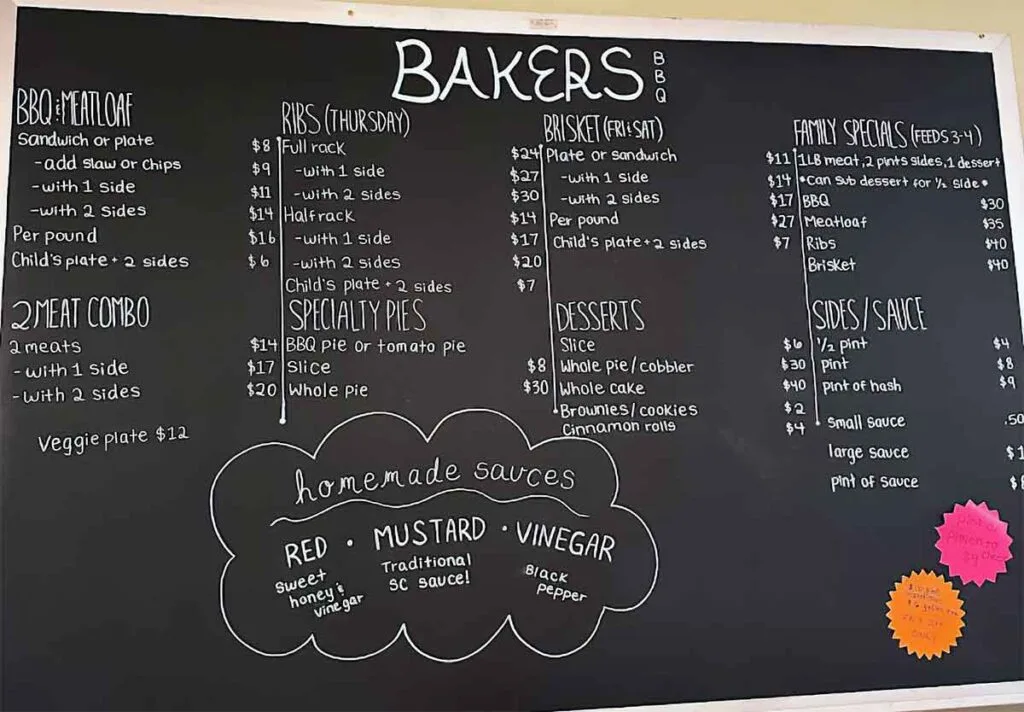 BAKERS BBQ
BBQ & MEATLOAF
Sandwich or plate $8
-add slaw or chips $9
-with 1 side $11
-with 2 sides $14
Per pound $16
Child's plate + 2 sides $6
2 MEAT COMBO
2 meats $14
-with 1 side $17
-with 2 sides $20
Veggie plate $12
RIBS (THURSDAY)
Full rack $24
-with 1 side $27
-with 2 sides $30
Half rack $14
-with 1 side $17
-with 2 sides $20
Child's plate + 2 sides $7
SPECIALTY PIES
BBQ pie or tomato pie
Slice $8
Whole pie $30
BRISKET (FRI & SAT)
Plate or sandwich $11
-with 1 side $14
-with 2 sides $17
Per pound $27
Child's plate + 2 sides $7
DESSERTS
Slice $6
Whole pie/cobbler $30
Whole cake $40
Brownies/cookies $2
Cinnamon rolls $4
FAMILY SPECIALS (FEEDS 3-4)
1LB meat, 2 pints sides, 1 dessert
*Can sub dessert for ½ side*
BBQ $30
Meatloaf $35
Ribs $40
Brisket $40
SIDES/SAUCE
½ pint $4
pint $8
pint of hash $9
small sauce .50
large sauce $1
pint of sauce
homemade sauces
RED • MUSTARD • VINEGAR
Sweet honey & vinegar
Traditional SC sauce!
Black pepper
pimento
cheese
$9
ONLY